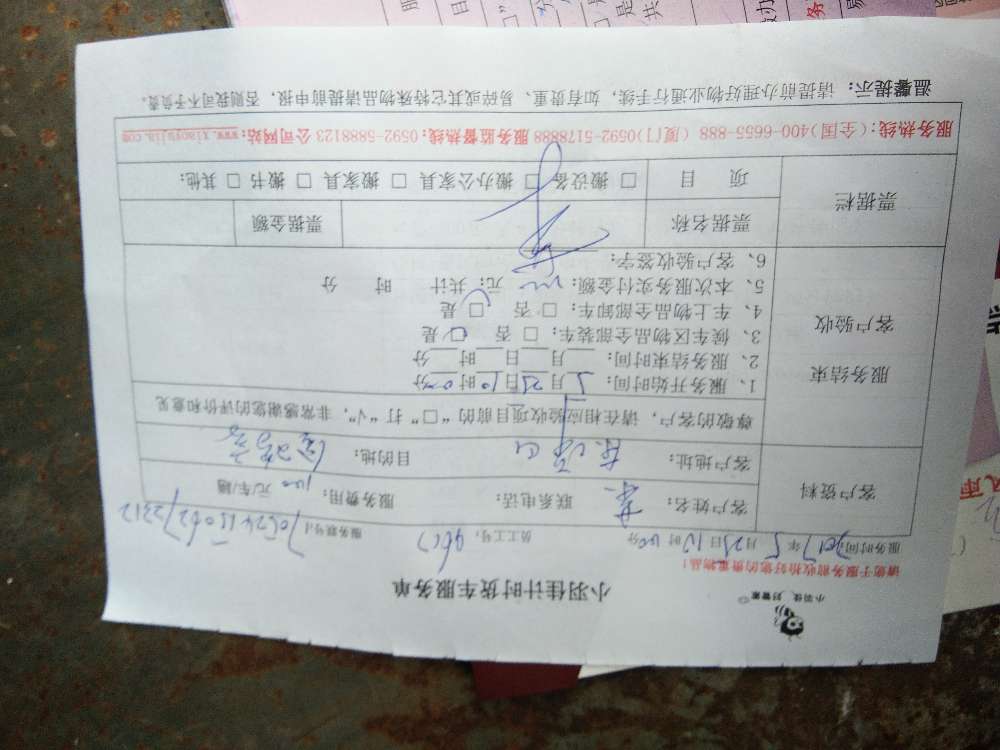 小羽佳 好管家
小羽佳计时货车服务单
请您于服务前收拾好您的贵重物品！
服务时间: 2017 年 5 月 21 日 10 时 00 分 员工工号: 服务联号:
客户资料
客户姓名: 联系电话: 服务费用: 100 元/车/趟
客户地址: 目的地:
尊敬的客户，请在相应验收项目前的“□”打“√”，非常感谢您的评价和意见
服务结束
客户验收
1、服务开始时间: 5 月 21 日 10 时 00 分
2、服务结束时间: 月 日 时 分
3、候车区物品全部装车: □ 否 □ 是
4、车上物品全部卸车: □ 否 □ 是
5、本次服务实付金额: 元; 共计 时 分
6、客户验收签字:
票据栏
票据名称 票据金额
项 目 □ 搬设备 □ 搬办公家具 □ 搬家具 □ 搬书 □ 其他:
服务热线:(全国)400-6655-888 (厦门)0592-5178888 服务监督热线: 0592-5888123 公司网站: www.xiaoyujia.com
温馨提示: 请提前办理好物业通行手续，如有贵重、易碎或其它特殊物品请提前申报，否则我司不予负责。